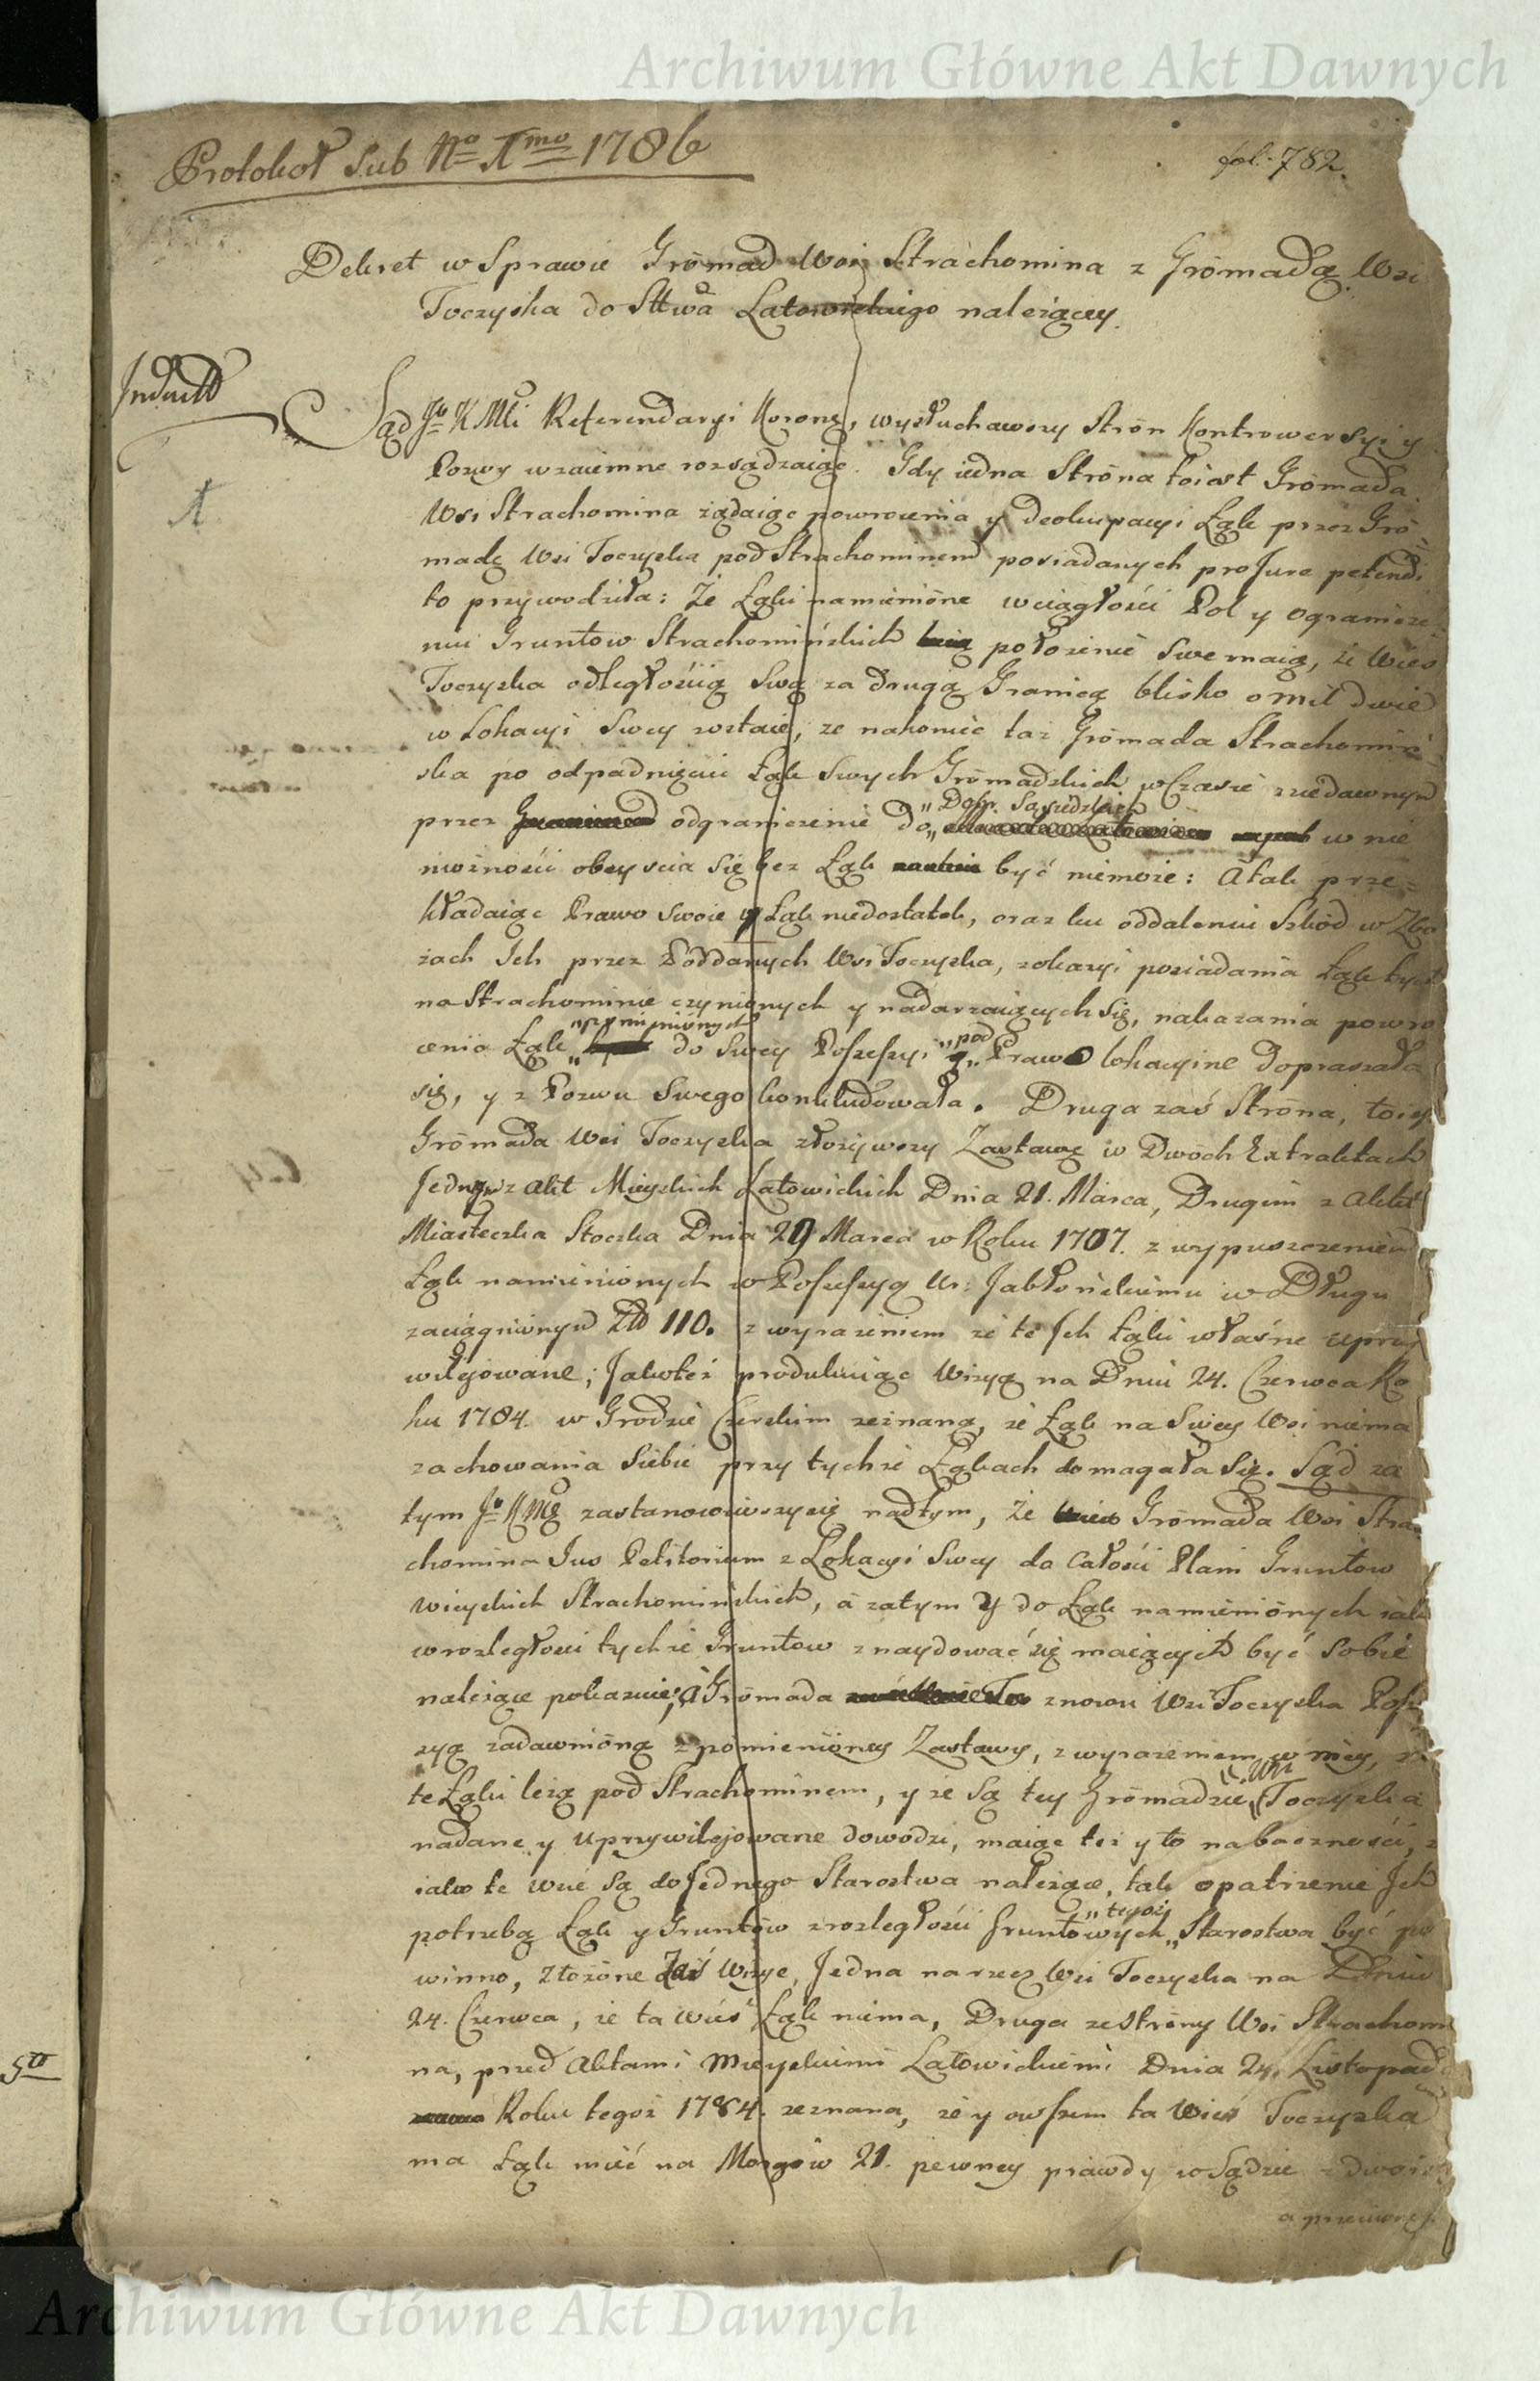 Archiwum Główne Akt Dawnych
Protokoł Sub Nro 1mo 1786
fol: 782.
Dekret w Sprawie Gromad Wsi Strachomina z Gromadą Wsi
Toczyska do Sttwa Latowickiego należący.
Indukt
1
Sąd Jo K Mci Referendaryi Koronę, wysłuchawszy Strón Kontrowersyi y
Pozwy wzaiemne rozsądzaiąc. Gdy iedna Stróna toiest Grómada
Wsi Strachomina żądaiąc powrócenia y Deokupacyi Łąk przez Gró=
madę Wsi Toczyska pod Strachominem posiadanych pro Jure petendi
to przywodziła: Że Łąki namienióne w ciągłości Pól y ogranicze=
niu Gruntow Strachomińskich położenie Swe maią, że Wies
Toczyska odległością Swą za drugą Granicą blisko o mil dwie
w Lokacyi Swey zostaie, ze nakoniec taż Grómada Strachomiń=
ska po odpadnięciu Łąk Swych Grómadzkich w Czasie niedawnym
przez odgraniczenie do „Dóbr Sąsiedzkich w nie
możności obeyscia się bez Łąk być niemoże: A tak prze=
kładaiąc Prawo swoie y Łąk niedostatek, oraz ku oddaleniu Szkód w Zbo
żach Ich przez Poddanych Wsi Toczyska, zokazyi posiadania Łąk tych
na Strachominie czynionych y nadarzaiących się, nakazania powró
cenia Łąk „rzeczonych do Swey Possessyi „pod Prawo lokacyine dopraszała
się, y z Pozwu Swego konkludowała. Druga zaś Stróna, toiest
Grómada Wsi Toczyska złożywszy Zastawę w Dwóch Extraktach
Jednym z Akt Mieyskich Latowickich Dnia 21. Marca, Drugim z Akt
Miasteczka Stoczka Dnia 29 Marca w Roku 1707. z wypuszczeniem
Łąk namienionych w Possessyą Ur: Jabłońskiemu w Długu
zaciągnionym Złł 110. z wyrażeniem że te Ich Łąki własne uprzy
wilejowane; Jakoteż produkuiąc Wizyą na Dniu 24. Czerwca Ro
ku 1784. w Grodzie Czerskim zeznaną, że Łąk na Swiey Wsi niema
zachowania Siebie przy tychże Łąkach domagała się. Sąd za
tym Jo K Mci zastanowiwszy się nad tym, że Grómada Wsi Stra=
chomina Jus Petitorium z Lokacyi Swey do Całości Plani Gruntow
wieyskich Strachomińskich, a zatym y do Łąk namienionych iak
w rozległości tychże Gruntow znaydować się maiących być Sobie
należące pokazuie; A Grómada znowu Wsi Toczyska Poss
zyą zadawnioną z pomienióney Zastawy, z wyrażeniem w niey, że
te Łąki leżą pod Strachominem, y ze są tey Grómadzie „Wsi Toczyska
nadane y uprzywilejowane dowodzi, maiąc też y to na baczności, z
iako te wsie są do Jednego Starostwa należące, tak opatrzenie Ich
potrzebą Łąk y Gruntów z rozległości Gruntowych „tegoż Starostwa być po
winno, złożone Zaś Wizye, Jedna na rzecz Wsi Toczyska na Dniu
24. Czerwca, że ta wieś Łąk niema, Druga ze Stróny Wsi Strachomi
na, przed Aktami Mieyskiemi Latowickiemi Dnia 24. Listopada
Roku tegoż 1784. zeznana, że y owszem ta Wieś Toczyska
ma Łąk mieć na Morgów 21. pewney prawdy w Sądzie z dwoie
a przeciwney
5to
Archiwum Główne Akt Dawnych